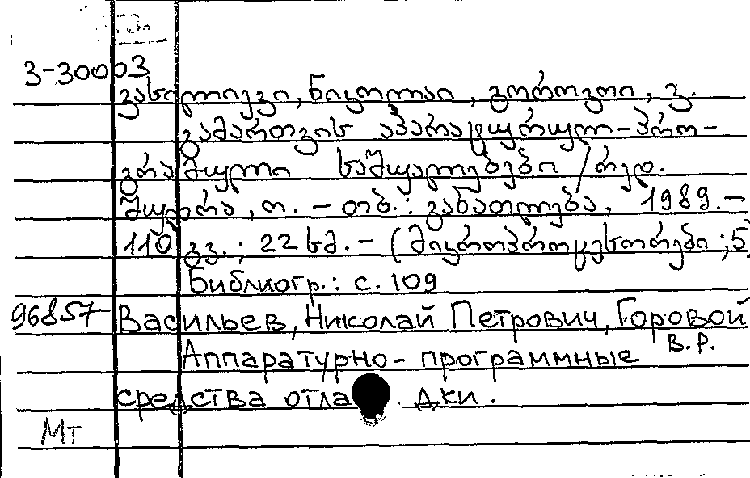 3-30003
ვასილიევი, ნიკოლაი, გოროვოი, ვ.
გამართვის აპარატურულ-პრო-
გრამული საშუალებები / რედ.
შუკრა, ო. – თბ.: განათლება, 1989.–
110 გვ.; 22 სმ. – (მიკროპროცესორები; 5)
Библиогр.: с. 109
96857 Васильев, Николай Петрович, Горовой
В.Р.
Аппаратурно-программные
средства отла дки.
Мт